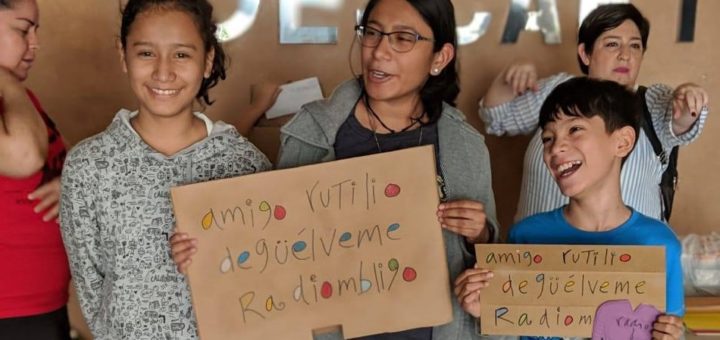 amigo rUTilio
degüélveme
Radiombligo
amigo rUTilio
degüélveme
Radiom
radio